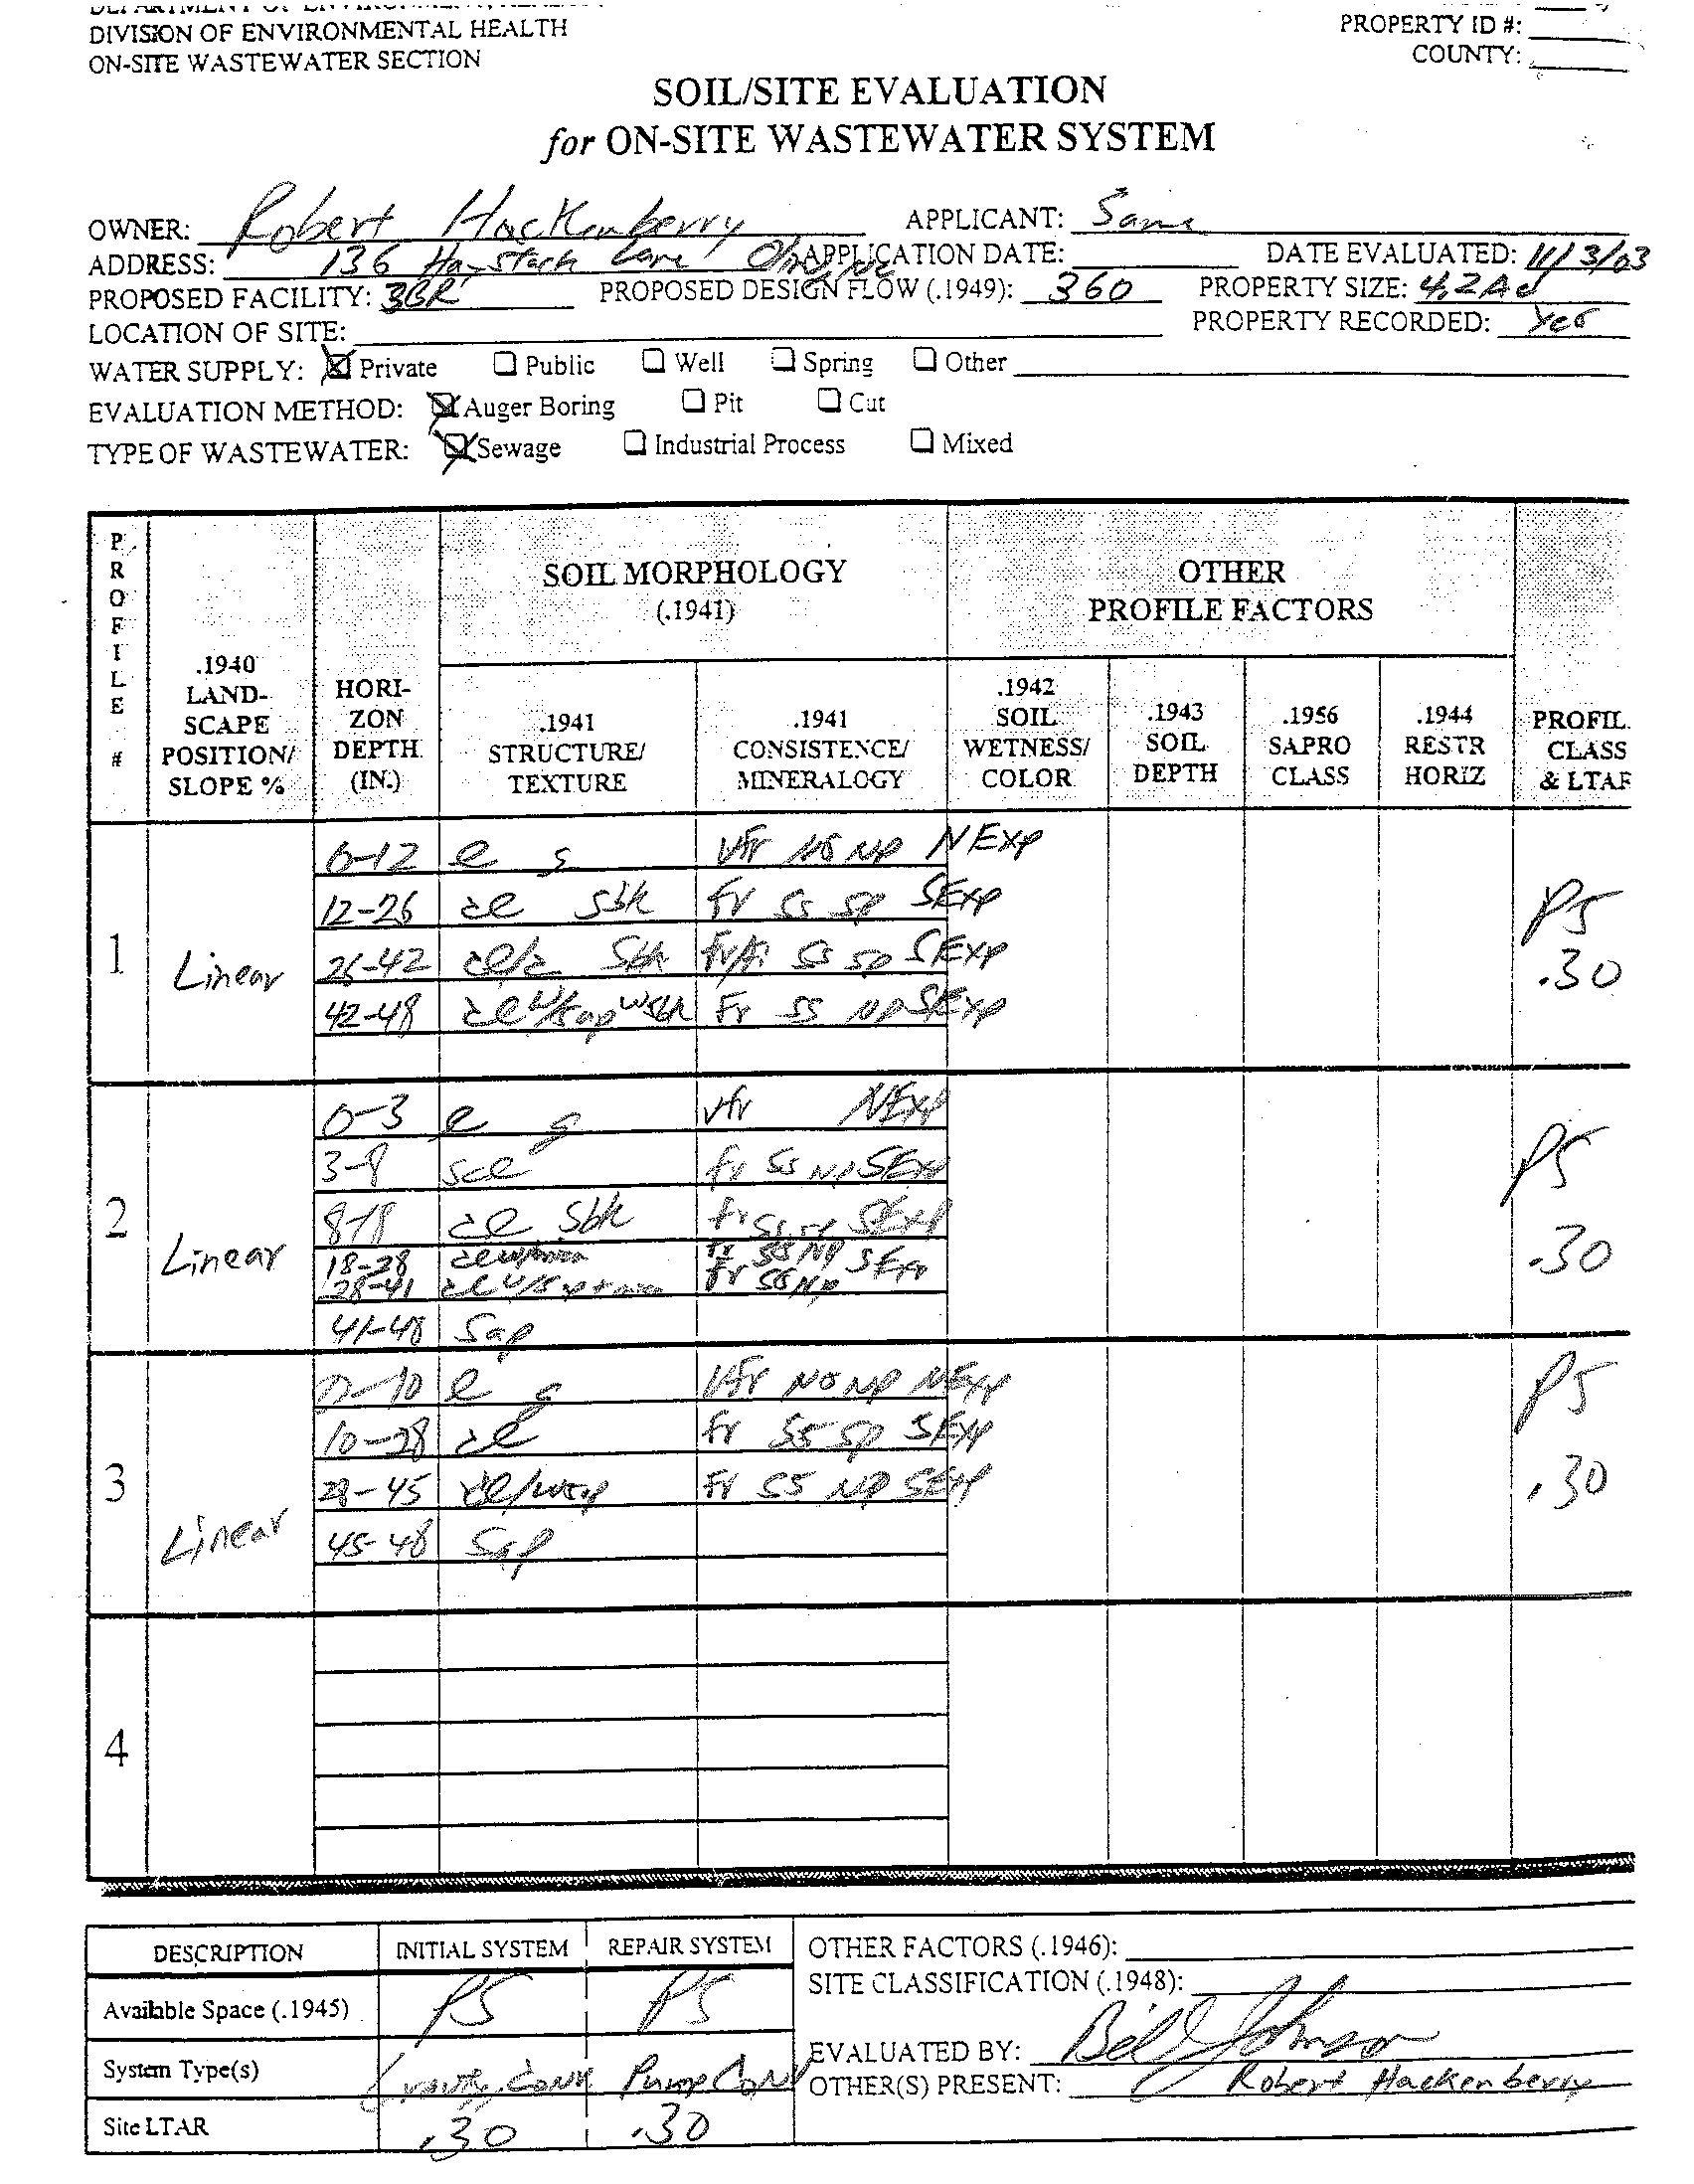 DIVISION OF ENVIRONMENTAL HEALTH
ON-SITE WASTEWATER SECTION
PROPERTY ID #:
COUNTY:
SOIL/SITE EVALUATION
for ON-SITE WASTEWATER SYSTEM
OWNER: Robert Hackenberry APPLICANT: Same
ADDRESS: 136 Haystack Lane APPLICATION DATE: DATE EVALUATED: 11/3/03
PROPOSED FACILITY: 3BR PROPOSED DESIGN FLOW (.1949): 360 PROPERTY SIZE: 4.2 Ac
LOCATION OF SITE: PROPERTY RECORDED: Yes
WATER SUPPLY: Private Public Well Spring Other
EVALUATION METHOD: Auger Boring Pit Cut
TYPE OF WASTEWATER: Sewage Industrial Process Mixed
PROFILE #
.1940 LAND-SCAPE POSITION/ SLOPE %
HORI-ZON DEPTH (IN.)
SOIL MORPHOLOGY (.1941)
.1941 STRUCTURE/ TEXTURE
.1941 CONSISTENCE/ MINERALOGY
OTHER PROFILE FACTORS
.1942 SOIL WETNESS/ COLOR
.1943 SOIL DEPTH
.1956 SAPRO CLASS
.1944 RESTR HORIZ
PROFIL. CLASS & LTAR
1 Linear PS .30
0-12 l g vfr NS NP NExp
12-26 cl sbk fr ss sp SExp
26-42 cl/c sbk fr/fi ss sp SExp
42-48 cl w/sap wsbk fr ss np SExp
2 Linear PS .30
0-3 l g vfr NExp
3-8 scl fr ss NP SExp
8-18 cl sbk fr ss sp SExp
18-28 cl w/mica fr ss NP SExp
28-41 cl w/sap + mica fr ss NP
41-48 Sap
3 Linear PS .30
0-10 l g vfr NS NP NExp
10-28 cl fr ss sp SExp
28-45 cl/wsap fr ss NP SExp
45-48 Sap
4
DESCRIPTION INITIAL SYSTEM REPAIR SYSTEM
Available Space (.1945) PS PS
System Type(s) Gravity Conv Pump Conv
Site LTAR .30 .30
OTHER FACTORS (.1946):
SITE CLASSIFICATION (.1948):
EVALUATED BY: Bill Johnson
OTHER(S) PRESENT: Robert Hackenberry